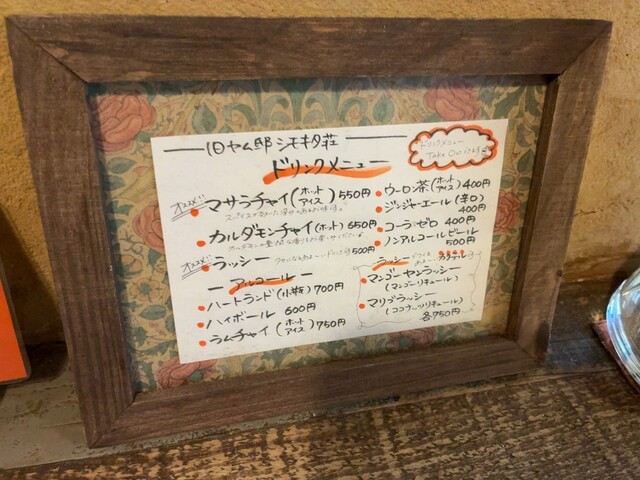 旧ヤム邸 シモキタ荘
ドリンクメニュー
ドリンクメニュー
Take Out
オススメ!
マサラチャイ(ホット アイス) 550円
カルダモンチャイ(ホット) 650円
オススメ!
ラッシー 500円
アルコール
ハートランド(小瓶) 700円
ハイボール 600円
ラムチャイ(ホット アイス) 750円
ウーロン茶(ホット アイス) 400円
ジンジャーエール(辛口)
400円
コーラゼロ 400円
ノンアルコールビール
500円
ラッシー カクテル
マンゴーヤンラッシー
(マンゴーリキュール)
マリブラッシー
(ココナッツリキュール)
各750円